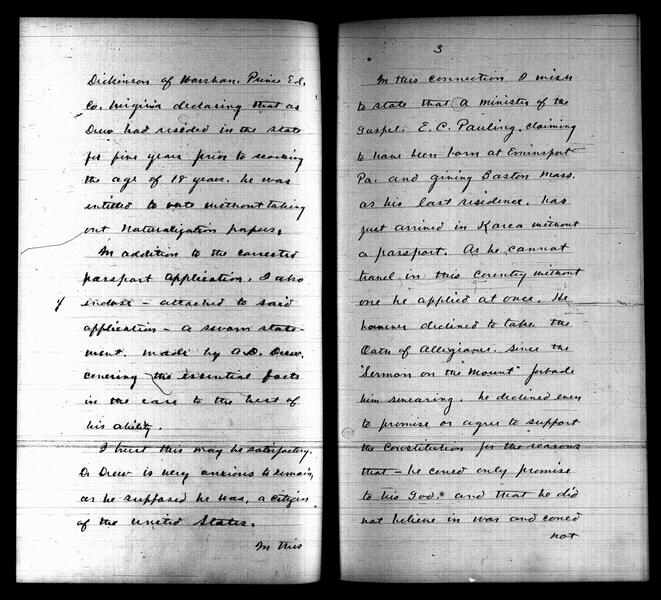 Dickinson of Worsham. Prince Ed.
Co. Virginia declaring that as
Drew had resided in the state
for five years prior to reaching
the age of 18 years. he was
entitled to vote without taking
out Naturalization papers.
In addition to the corrected
passport application, I also
inclose - attached to said
application - a sworn state-
ment. made by A.D. Drew,
covering the essential facts
in the case to the best of
his ability.
I trust this may be satisfactory.
Dr Drew is very anxious to remain,
as he supposed he was, a citizen
of the United States.
In this
3
In this connection I wish
to state that a minister of the
Gospel; E. C. Pauling, claiming
to have been born at
Pa. and giving Boston Mass.
as his last residence. has
just arrived in Korea without
a passport. As he cannot
travel in this country without
one he applied at once. He
however declined to take the
Oath of Allegiance. since the
"Sermon on the Mount" forbade
him swearing. he declined even
to promise or agree to support
the Constitution for the reasons
that - he could only promise
to his God. and that he did
not believe in war and could
not